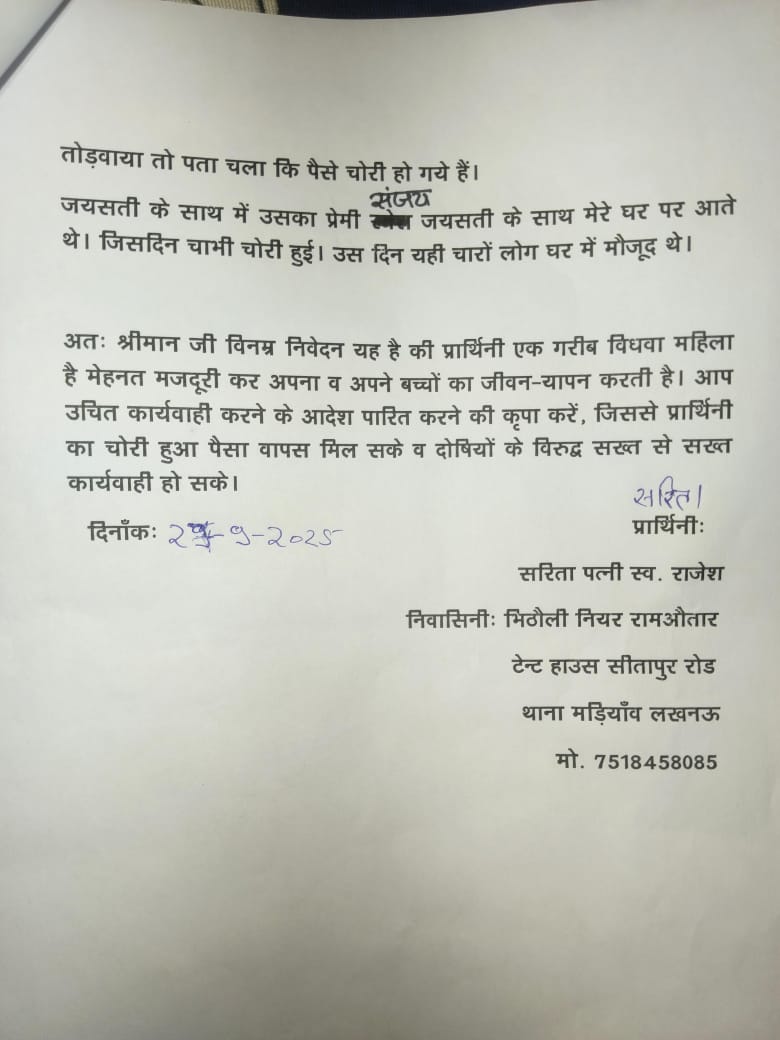 तोड़वाया तो पता चला कि पैसे चोरी हो गये हैं।
संजय
जयसती के साथ में उसका प्रेमी जयसती के साथ मेरे घर पर आते
थे। जिसदिन चाभी चोरी हुई। उस दिन यही चारों लोग घर में मौजूद थे।
अतः श्रीमान जी विनम्र निवेदन यह है की प्रार्थिनी एक गरीब विधवा महिला
है मेहनत मजदूरी कर अपना व अपने बच्चों का जीवन-यापन करती है। आप
उचित कार्यवाही करने के आदेश पारित करने की कृपा करें, जिससे प्रार्थिनी
का चोरी हुआ पैसा वापस मिल सके व दोषियों के विरुद्ध सख्त से सख्त
कार्यवाही हो सके।
सरिता
दिनाँकः -9-2025 प्रार्थिनीः
सरिता पत्नी स्व. राजेश
निवासिनीः भिठौली नियर रामऔतार
टेन्ट हाउस सीतापुर रोड
थाना मड़ियाँव लखनऊ
मो. 7518458085